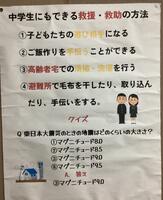 中学生にもできる救援・救助の方法
①子どもたちの遊び相手になる
②ご飯作りを手伝うことができる
③高齢者宅での掃除・洗濯を行う
④避難所で毛布を干したり、取り込ん
だり、手伝いをする。
クイズ
Q 東日本大震災のときの地震はどのくらいの大きさ?
①マグニチュード8.0
②マグニチュード8.5
③マグニチュード9.0
④マグニチュード9.5
A. 答え
③マグニチュード9.0